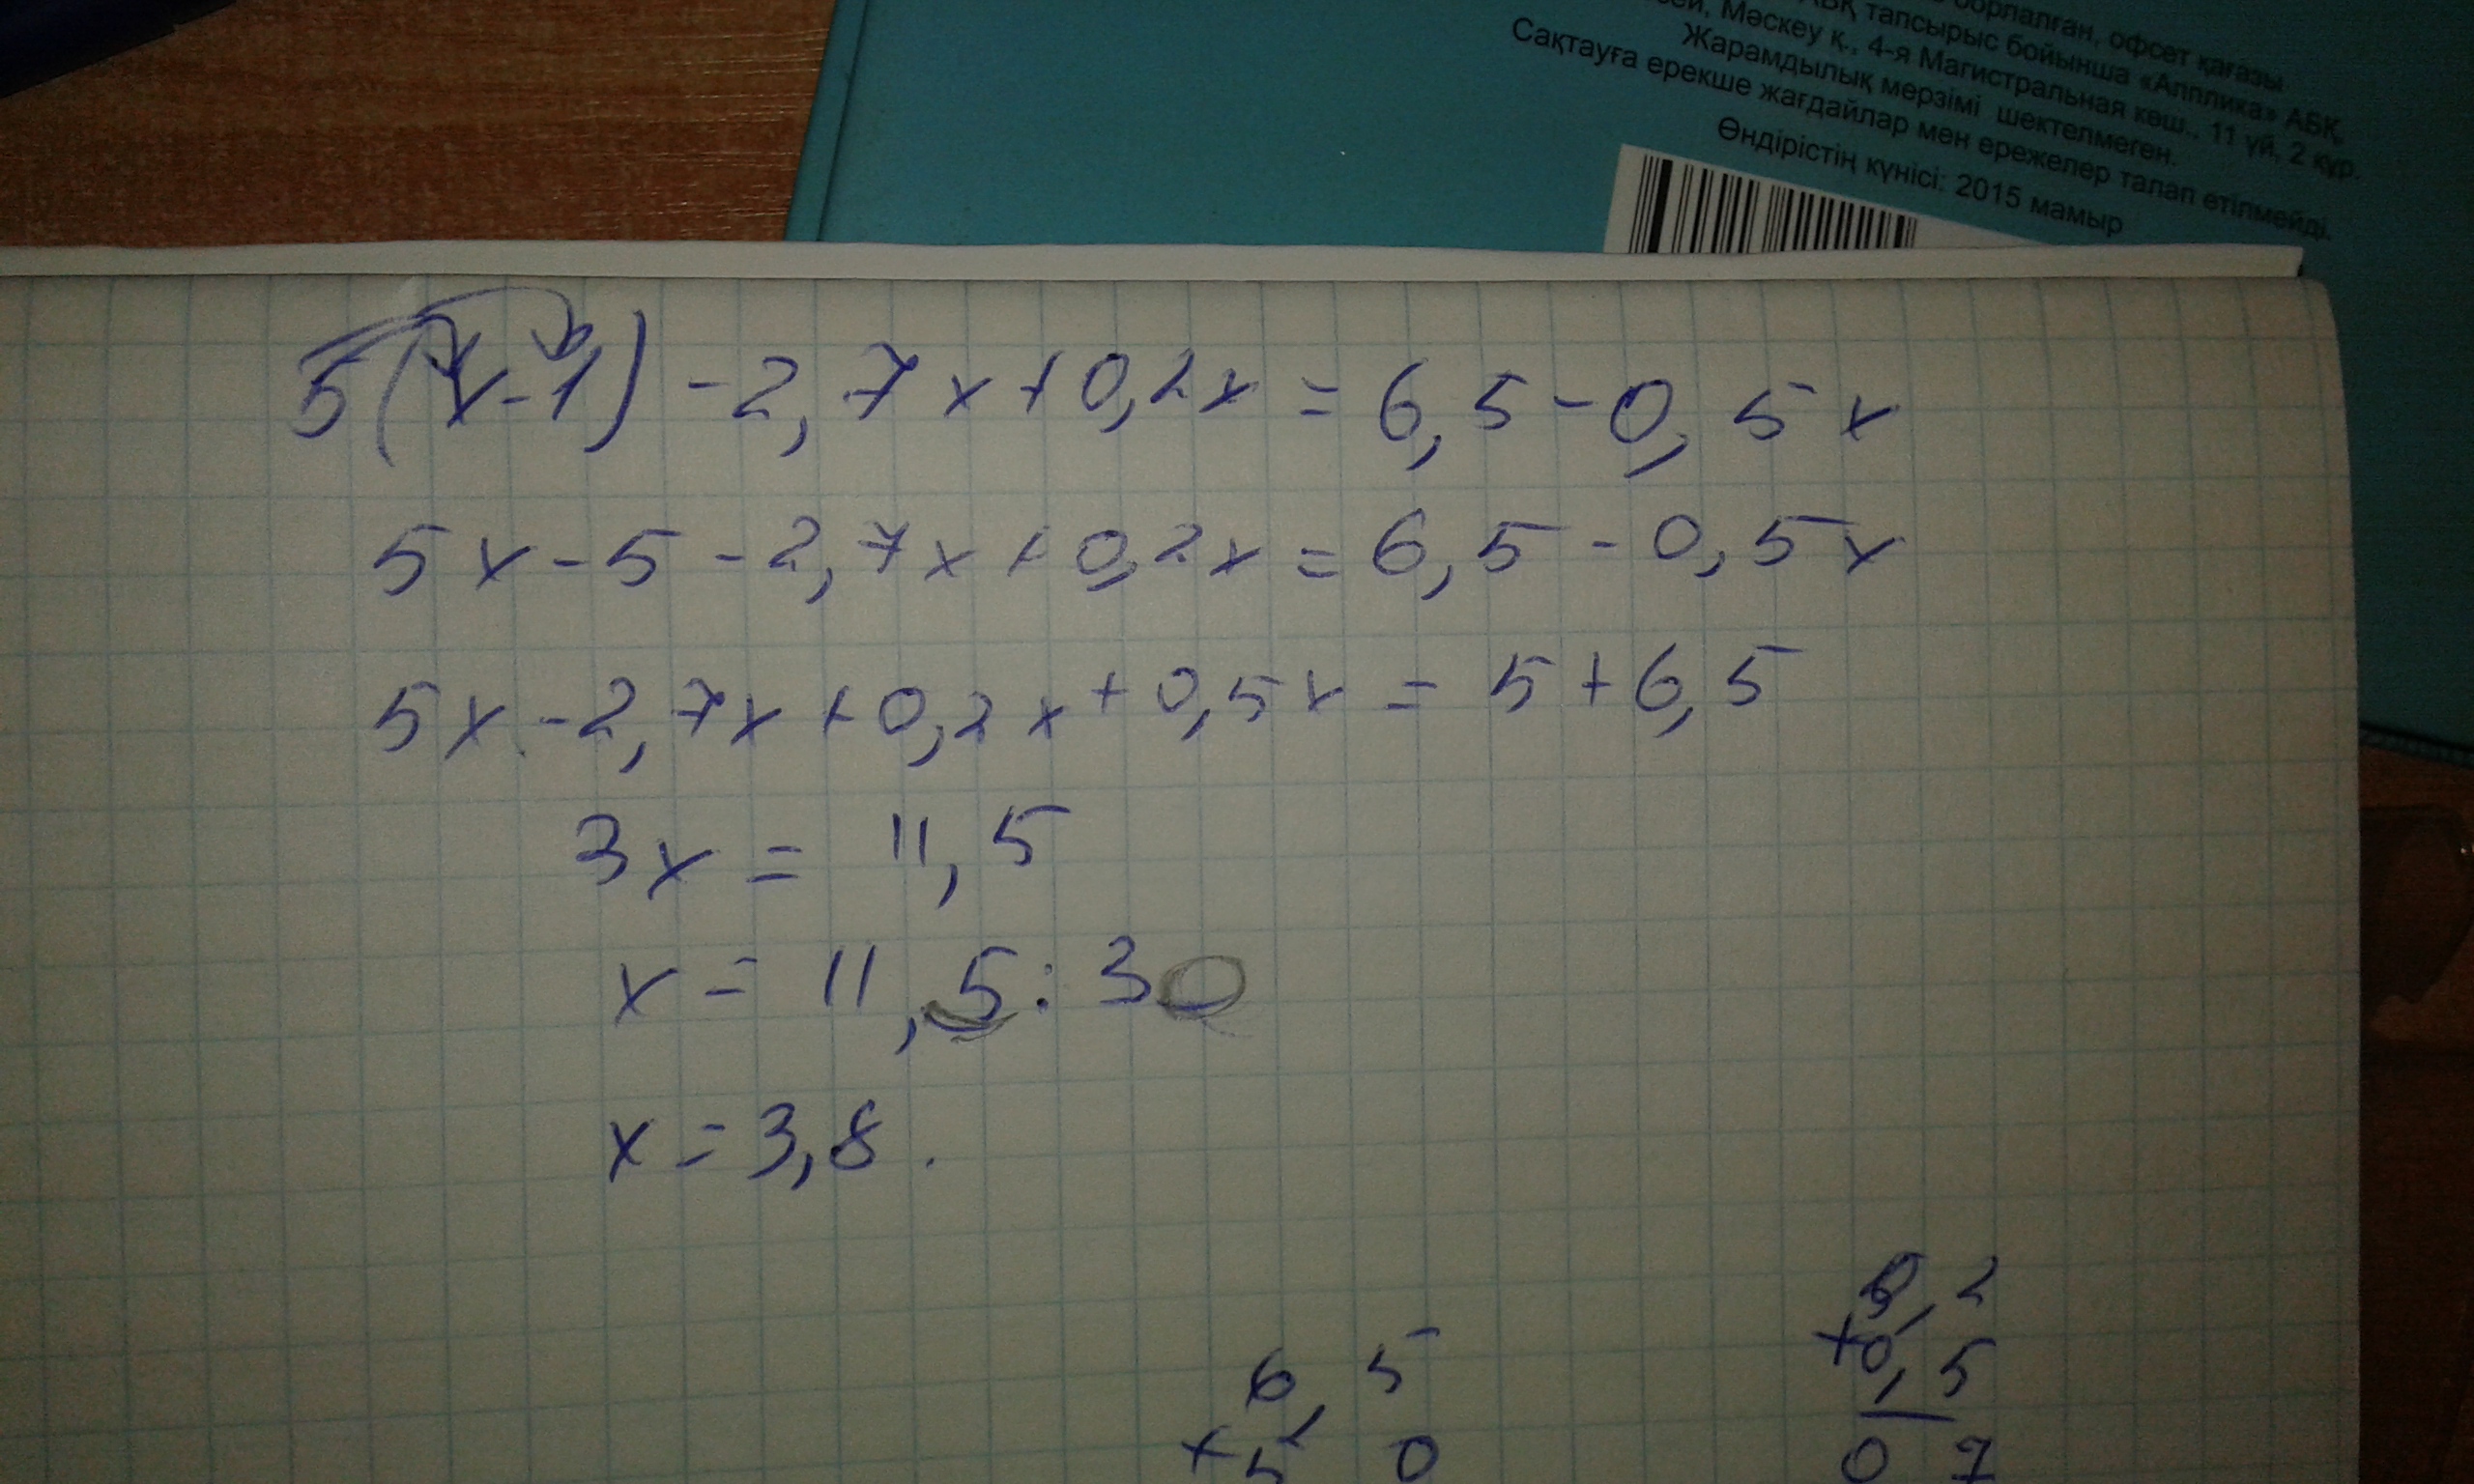 борлалған, офсет қағазы
АБҚ тапсырыс бойынша «Апплика» АБҚ,
Мәскеу қ., 4-я Магистральная көш., 11 үй, 2 құр.
Жарамдылық мерзімі шектелмеген.
Сақтауға ерекше жағдайлар мен ережелер талап етілмейді.
Өндірістің күнісі: 2015 мамыр
5(x-1)-2,7x+0,2x=6,5-0,5x
5x-5-2,7x+0,2x=6,5-0,5x
5x-2,7x+0,2x+0,5x=5+6,5
3x=11,5
x=11,5:30
x=3,8.
6,5
+5,0
,2
+0,5
0 7